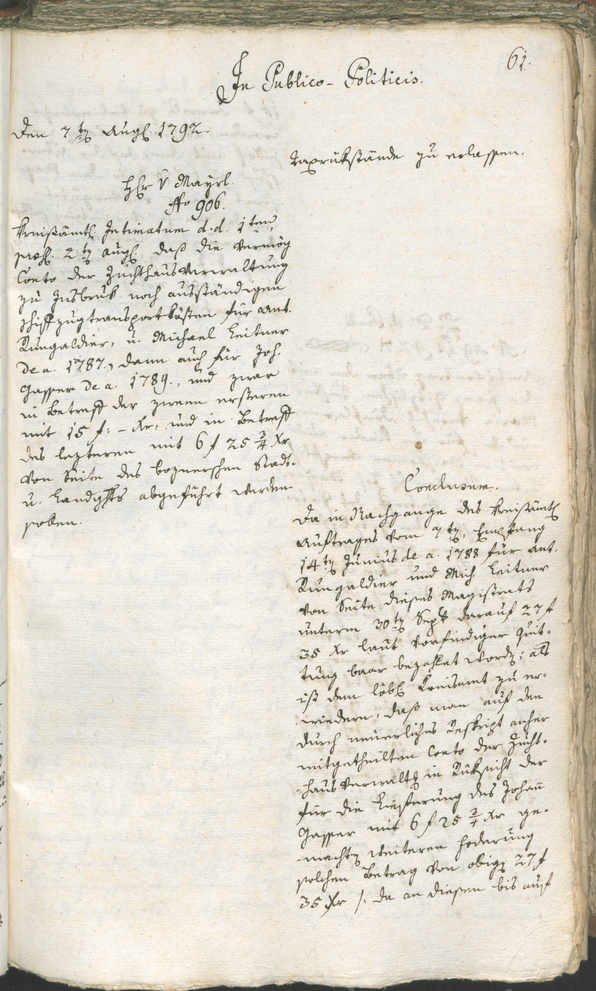 61.
In Publico-Politicis.
Den 7ten Augt. 1792.
Taxrükstände zu erlassen.
H. v Mayrl.
No 906.
Kreisämtl. Intimatum d.d. 1ten,
praes. 2ten Augt. daß die vermög
Conto der Zuchthausverwaltung
zu Insbruk noch ausständigen
Schiffzugtransportkösten für Ant.
Rungaldier, u. Michael Leitner
de a. 1787., dann auch für Joh.
Gasser de a. 1789., und zwar
in Betreff der zween ersteren
mit 15 f: – Xr, und in Betreff
des lezteren mit 6 f 25 2/4 Xr
von Seite des boznerschen Stadt-
u. Landgchts abgeführt werden
sollen.
Conclusum.
Da in Nachgange des kreisämtl.
Auftrages vom 7ten, Empfang
14ten Junius de a. 1788 für Ant.
Rungaldier und Mich. Leitner
von Seite dieses Magistrats
unterm 30ten Sept. darauf 27 f
35 Xr laut vorfindiger Quit-
tung baar bezahlet worden; als
ist dem löbl. Kreisamt zu er-
wiedern, daß man auf den
durch neuerliches Reskript anher
mitgetheilten Conto der Zucht-
hausverwaltg in Rüksicht der
für die Lieferung des Johann
Gasser mit 6 f 25 2/4 Xr ge-
machten weiteren Foderung
solchen Betrag von obigen 27 f
35 Xr /: da an diesen bis auf